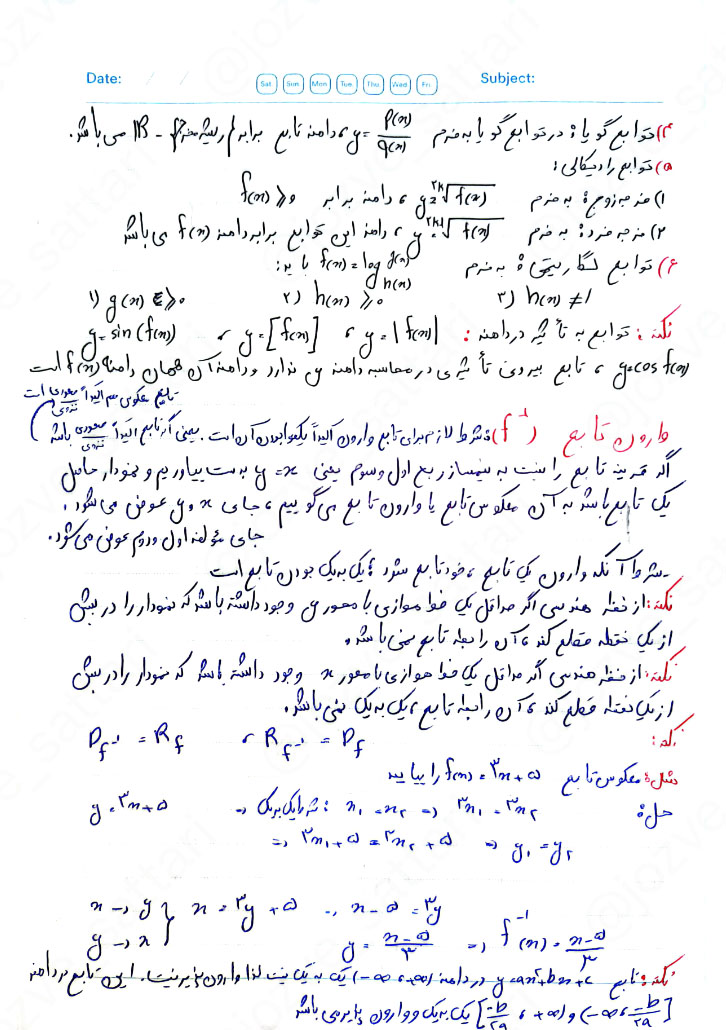 Date: / / Sat Sun Mon Tue Thu Wed Fri Subject:
۴) توابع گویا: در توابع گویا به فرم y = P(x)/q(x) ، دامنه تابع برابر {ریشه مخرج} - IR می باشد.
۵) توابع رادیکالی:
۱) فرجه زوج: به فرم y = ²ᵏ√f(x) ، دامنه برابر f(x) ≥ 0
۲) فرجه فرد: به فرم y = ²ᵏ⁺¹√f(x) ، دامنه این توابع برابر دامنه f(x) می باشد
۶) توابع لگاریتمی: به فرم f(x) = log g(x) h(x) باید:
۱) g(x) > 0 ۲) h(x) > 0 ۳) h(x) ≠ 1
نکته: توابع بی تأثیر در دامنه: y = |f(x)| ، y = [f(x)] ، y = sin(f(x))
y = cos f(x) ، تابع بیرونی تأثیری در محاسبه دامنه y ندارد و دامنه آن همان دامنه f(x) است
وارون تابع (f⁻¹): شرط لازم برای تابع وارون اکیداً یکنوا بودن آن است. یعنی اگر تابع اکیداً صعودی نزولی باشد
تابع معکوس هم اکیداً صعودی نزولی است
اگر قرینه تابع را نسبت به نیمساز ربع اول و سوم یعنی y = x بدست بیاوریم و نمودار حاصل
یک تابع باشد به آن معکوس تابع یا وارون تابع می گوییم ، جای x و y عوض می شود.
جای مؤلفه اول و دوم عوض می شود.
- شرط آنکه وارون یک تابع ، خود تابع شود ؛ یک به یک بودن تابع است
نکته: از نقطه هندسی اگر حداقل یک خط موازی با محور y وجود داشته باشد که نمودار را در بیش
از یک نقطه قطع کند ، آن رابطه تابع نمی باشد.
نکته: از نقطه هندسی اگر حداقل یک خط موازی با محور x وجود داشته باشد که نمودار را در بیش
از یک نقطه قطع کند ، آن رابطه تابع ، یک به یک نمی باشد.
نکته: D_f⁻¹ = R_f ، R_f⁻¹ = D_f
مثال: معکوس تابع f(x) = ۳x + ۵ را بیابید
حل: y = ۳x + ۵ ⇒ شرط یک به یک: x₁ = x₂ ⇒ ۳x₁ = ۳x₂
⇒ ۳x₁ + ۵ = ۳x₂ + ۵ ⇒ y₁ = y₂
x → y } x = ۳y + ۵ → x - ۵ = ۳y
y → x } y = (x-۵)/۳ ⇒ f⁻¹(x) = (x-۵)/۳
نکته: تابع y = ax² + bx + c در دامنه (-∞ ، +∞) یک به یک نیست لذا وارون پذیر نیست. این تابع در دامنه
(-∞ ، -b/۲a] و [-b/۲a ، +∞) یک به یک و وارون پذیر می باشد